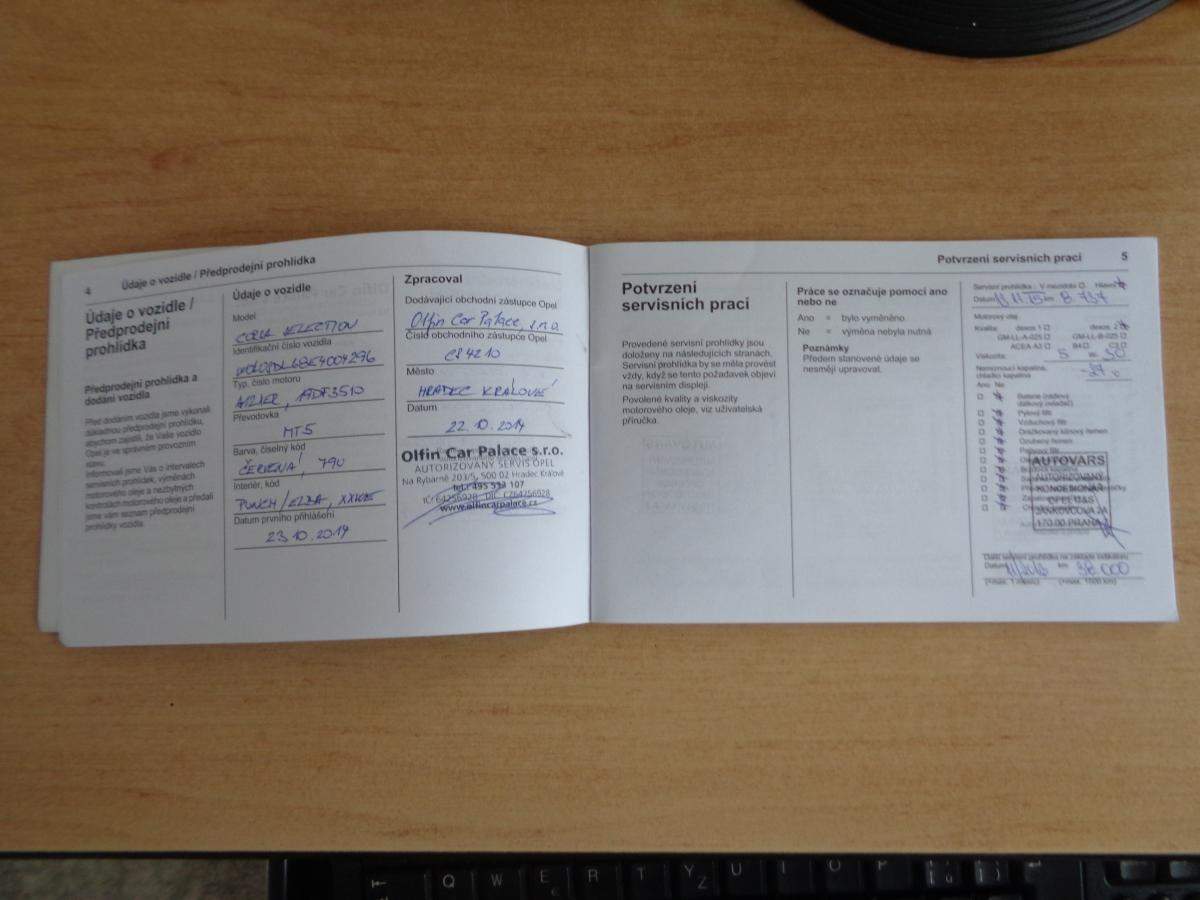 4 Údaje o vozidle / Předprodejní prohlídka
Údaje o vozidle /
Předprodejní
prohlídka
Předprodejní prohlídka a
dodání vozidla
Před dodáním vozidla jsme vykonali
důkladnou předprodejní prohlídku,
abychom zajistili, že Vaše vozidlo
Opel je ve správném provozním
stavu.
Informovali jsme Vás o intervalech
servisních prohlídek, výměnách
motorového oleje a nezbytných
kontrolách motorového oleje a předali
jsme vám seznam předprodejní
prohlídky vozidla.
Údaje o vozidle
Model
SELECTION
Identifikační číslo vozidla
Typ, číslo motoru
Převodovka
MT5
Barva, číselný kód
ČERVENÁ, 79U
Interiér, kód
PUNCH / ELBA,
Datum prvního přihlášení
23.10.2014
Zpracoval
Dodávající obchodní zástupce Opel
Olfin Car Palace, s.r.o.
Číslo obchodního zástupce Opel
CS4210
Město
HRADEC KRÁLOVÉ
Datum
22.10.2014
Olfin Car Palace s.r.o.
AUTORIZOVANÝ SERVIS OPEL
Na Rybárně 203/5, 500 02 Hradec Králové
tel.: 495 532 107
IČ: 64256928, DIČ: CZ64256928
www.olfincarpalace.cz
Potvrzení servisních prací 5
Potvrzení
servisních prací
Provedené servisní prohlídky jsou
doloženy na následujících stranách.
Servisní prohlídka by se měla provést
vždy, když se tento požadavek objeví
na servisním displeji.
Povolené kvality a viskozity
motorového oleje, viz uživatelská
příručka.
Práce se označuje pomocí ano
nebo ne
Ano = bylo vyměněno
Ne = výměna nebyla nutná
Poznámky
Předem stanovené údaje se
nesmějí upravovat.
Servisní prohlídka : V mezidobí Hlavní
Datum 11.11.15 km 8 737
Motorový olej
Kvalita: dexos 1 dexos 2
GM-LL-A-025 GM-LL-B-025
ACEA A3 B4
Viskozita: 5 W 30
Nemrznoucí kapalina,
chladicí kapalina
Ano Ne
Baterie (rádiový
dálkový ovladač)
Pylový filtr
Vzduchový filtr
Drážkovaný klínový řemen
Ozubený řemen
Palivový filtr
AUTOVARS
AUTORIZOVANÝ
KONCESIONÁŘ
OPEL
JANKOVCOVA 2A
170 00 PRAHA
Další servisní prohlídka na základě indikátoru
Datum km 38.000
(+max. 1 měsíc) (+max. 1000 km)
Q W E R T Y Z U I O P